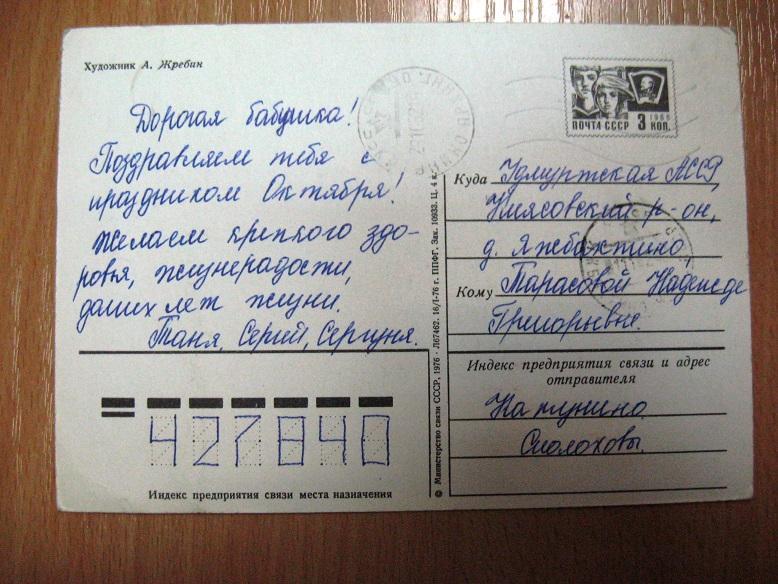 Художник А. Жребин
Дорогая бабушка!
Поздравляем тебя с
праздником Октября!
Желаем крепкого здо-
ровья, жизнерадости,
долгих лет жизни.
Таня, Сергей, Сергуня.
1966
ПОЧТА СССР 3 КОП.
Куда Удмуртская АССР,
р-он,
д.
Кому Тарасовой Надежде
Григорьевне.
Индекс предприятия связи и адрес
отправителя
© Министерство связи СССР, 1976 · Л67462. 16/I-76 г. ППФГ. Зак. 10933. Ц. 4 к.
427840
Индекс предприятия связи места назначения